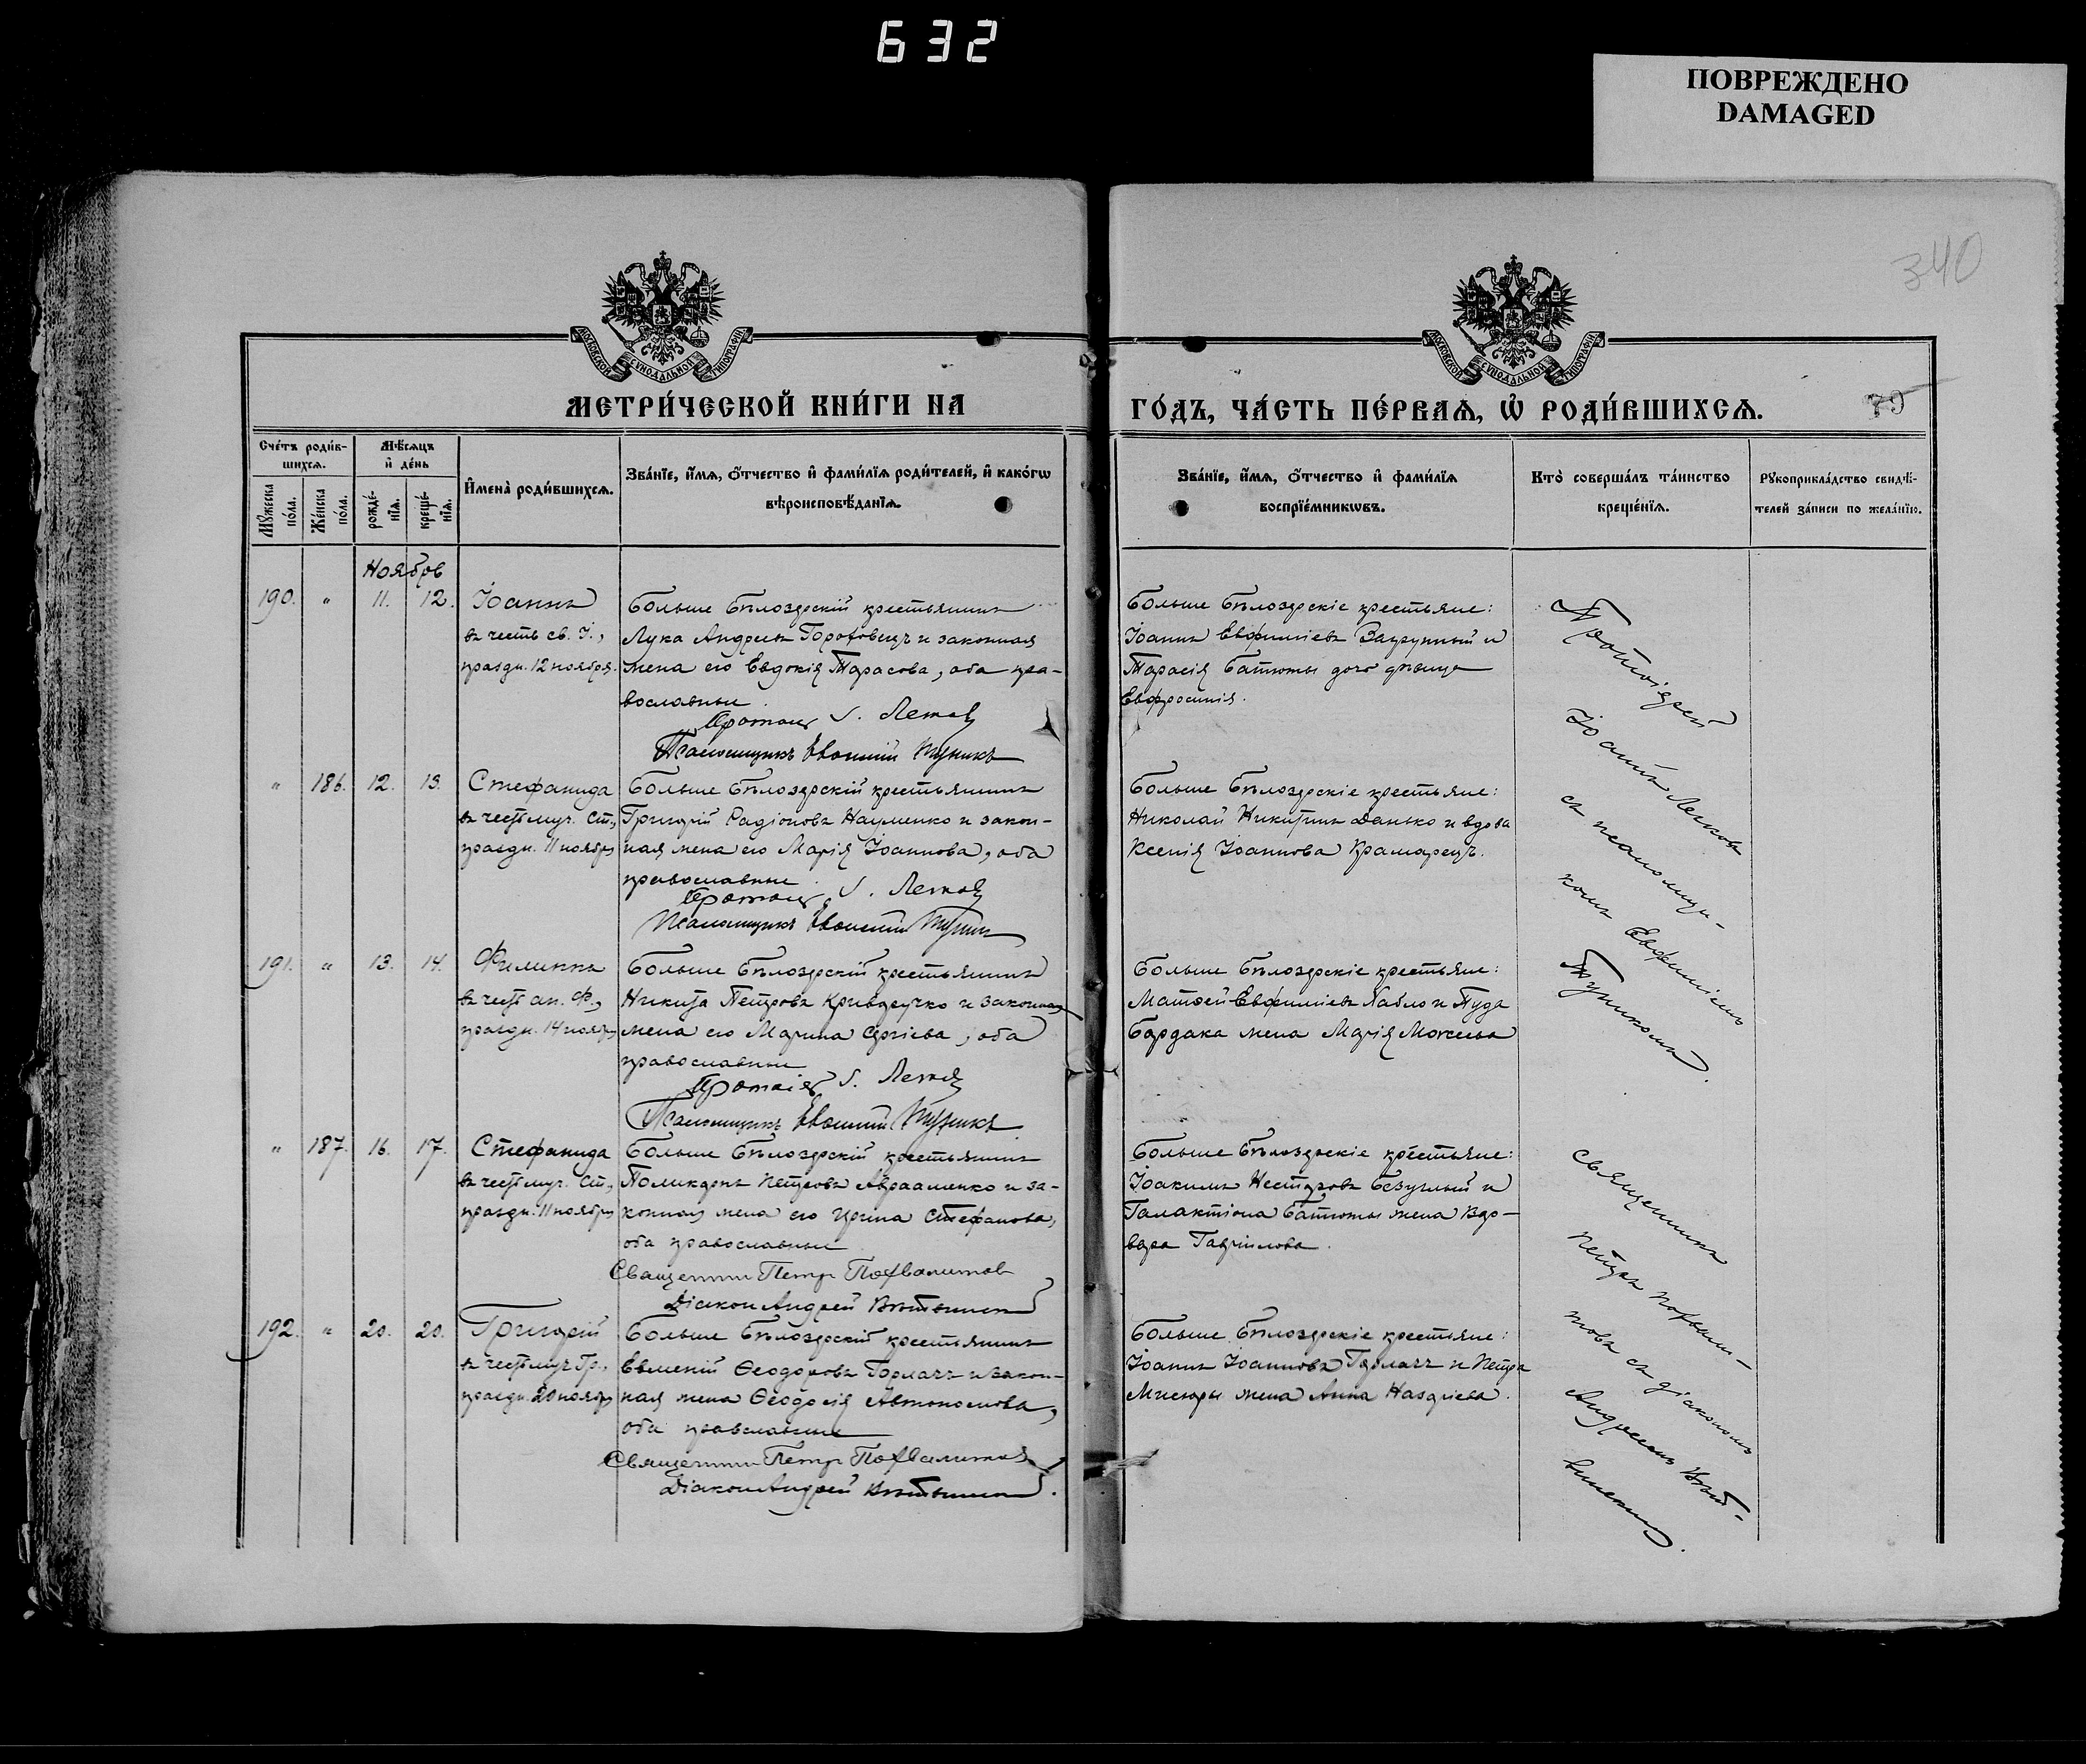 632
ПОВРЕЖДЕНО
DAMAGED
340
МОСКОВСКОЙ СѴНОДАЛЬНОЙ ТИПОГРАФІИ
МОСКОВСКОЙ СѴНОДАЛЬНОЙ ТИПОГРАФІИ
МЕТРИ́ЧЕСКОЙ КНИ́ГИ НА
ГО́ДЪ, ЧА́СТЬ ПЕ́РВАѦ, Ѿ РОДИ́ВШИХСѦ.
79
Сче́тъ роди́в-
шихсѧ.
Мѣ́сѧцъ
и҆ де́нь
Мꙋ́жеска
по́ла.
Же́нска
по́ла.
рожде́-
нїѧ.
креще́-
нїѧ.
И҆мена̀ роди́вшихсѧ.
Зва́нїе, и҆́мѧ, ѻ҆́тчество и҆ фами́лїѧ роди́телей, и҆ како́гѡ
вѣроисповѣ́данїѧ.
Зва́нїе, и҆́мѧ, ѻ҆́тчество и҆ фами́лїѧ
воспрїе́мникѡвъ.
Кто̀ соверша́лъ та́инство
креще́нїѧ.
Рꙋкоприкла́дство свидѣ́-
телей за́писи по жела́нїю.
Ноябрь
190. " 11. 12. Іоаннъ
въ честь св. І.,
праздн. 12 ноября.
Больше Бѣлозерскій крестьянинъ
Лука Андреевъ Гороховецъ и законная
жена его Евдокія Тарасова, оба пра-
вославные
Протоіер. І. Легков
Псаломщикъ Евфимій Тупикъ
Больше Бѣлозерскіе крестьяне:
Іоаннъ Евфиміевъ Загрупный и
Тарасія Батюты дочь дѣвица
Евфросинія.
Протоіерей
Іоаннъ Легковъ
съ псаломщи-
комъ Евфиміемъ
Тупикомъ.
" 186. 12. 13. Стефанида
въ честь муч. Ст.,
праздн. 11 ноября
Больше Бѣлозерскій крестьянинъ
Григорій Радіоновъ Науменко и закон-
ная жена его Марія Іоаннова, оба
православные
Протоіер. І. Легков
Псаломщикъ Евфимій Тупик
Больше Бѣлозерскіе крестьяне:
Николай Никитинъ Данько и вдова
Ксенія Іоаннова Крамарецъ.
191. " 13. 14. Филиппъ
въ честь ап. Ф.,
праздн. 14 ноября
Больше Бѣлозерскій крестьянинъ
Никита Петровъ Криворучко и законная
жена его Марина Сергіева, оба
православные
Протоіер. І. Легков
Псаломщикъ Евфимій Тупикъ
Больше Бѣлозерскіе крестьяне:
Матѳей Евфиміевъ Павло и Туда
Бардака жена Марія Мокеева
" 187. 16. 17. Стефанида
въ честь муч. Ст.,
праздн. 11 ноября
Больше Бѣлозерскій крестьянинъ
Поликарпъ Петровъ Авраменко и за-
конная жена его Ирина Стефанова,
оба православные
Священник Петр Похвалитов
Діакон Андрей
Больше Бѣлозерскіе крестьяне:
Іоакимъ Несторовъ Безуглый и
Галактіона Батюты жена Вар-
вара Гавріилова.
Священникъ
Петръ Похвали-
товъ съ діакономъ
Андреемъ
192. " 20. 20. Григорій
въ честь муч. Гр.,
праздн. 20 ноября
Больше Бѣлозерскій крестьянинъ
Евменій Ѳеодоровъ Горлачъ и закон-
ная жена Ѳеодосія Автономова,
оба православные
Священник Петр Похвалитов
Діакон Андрей
Больше Бѣлозерскіе крестьяне:
Іоаннъ Іоанновъ Горлачъ и Петра
Мисюры жена Анна Назаріева.